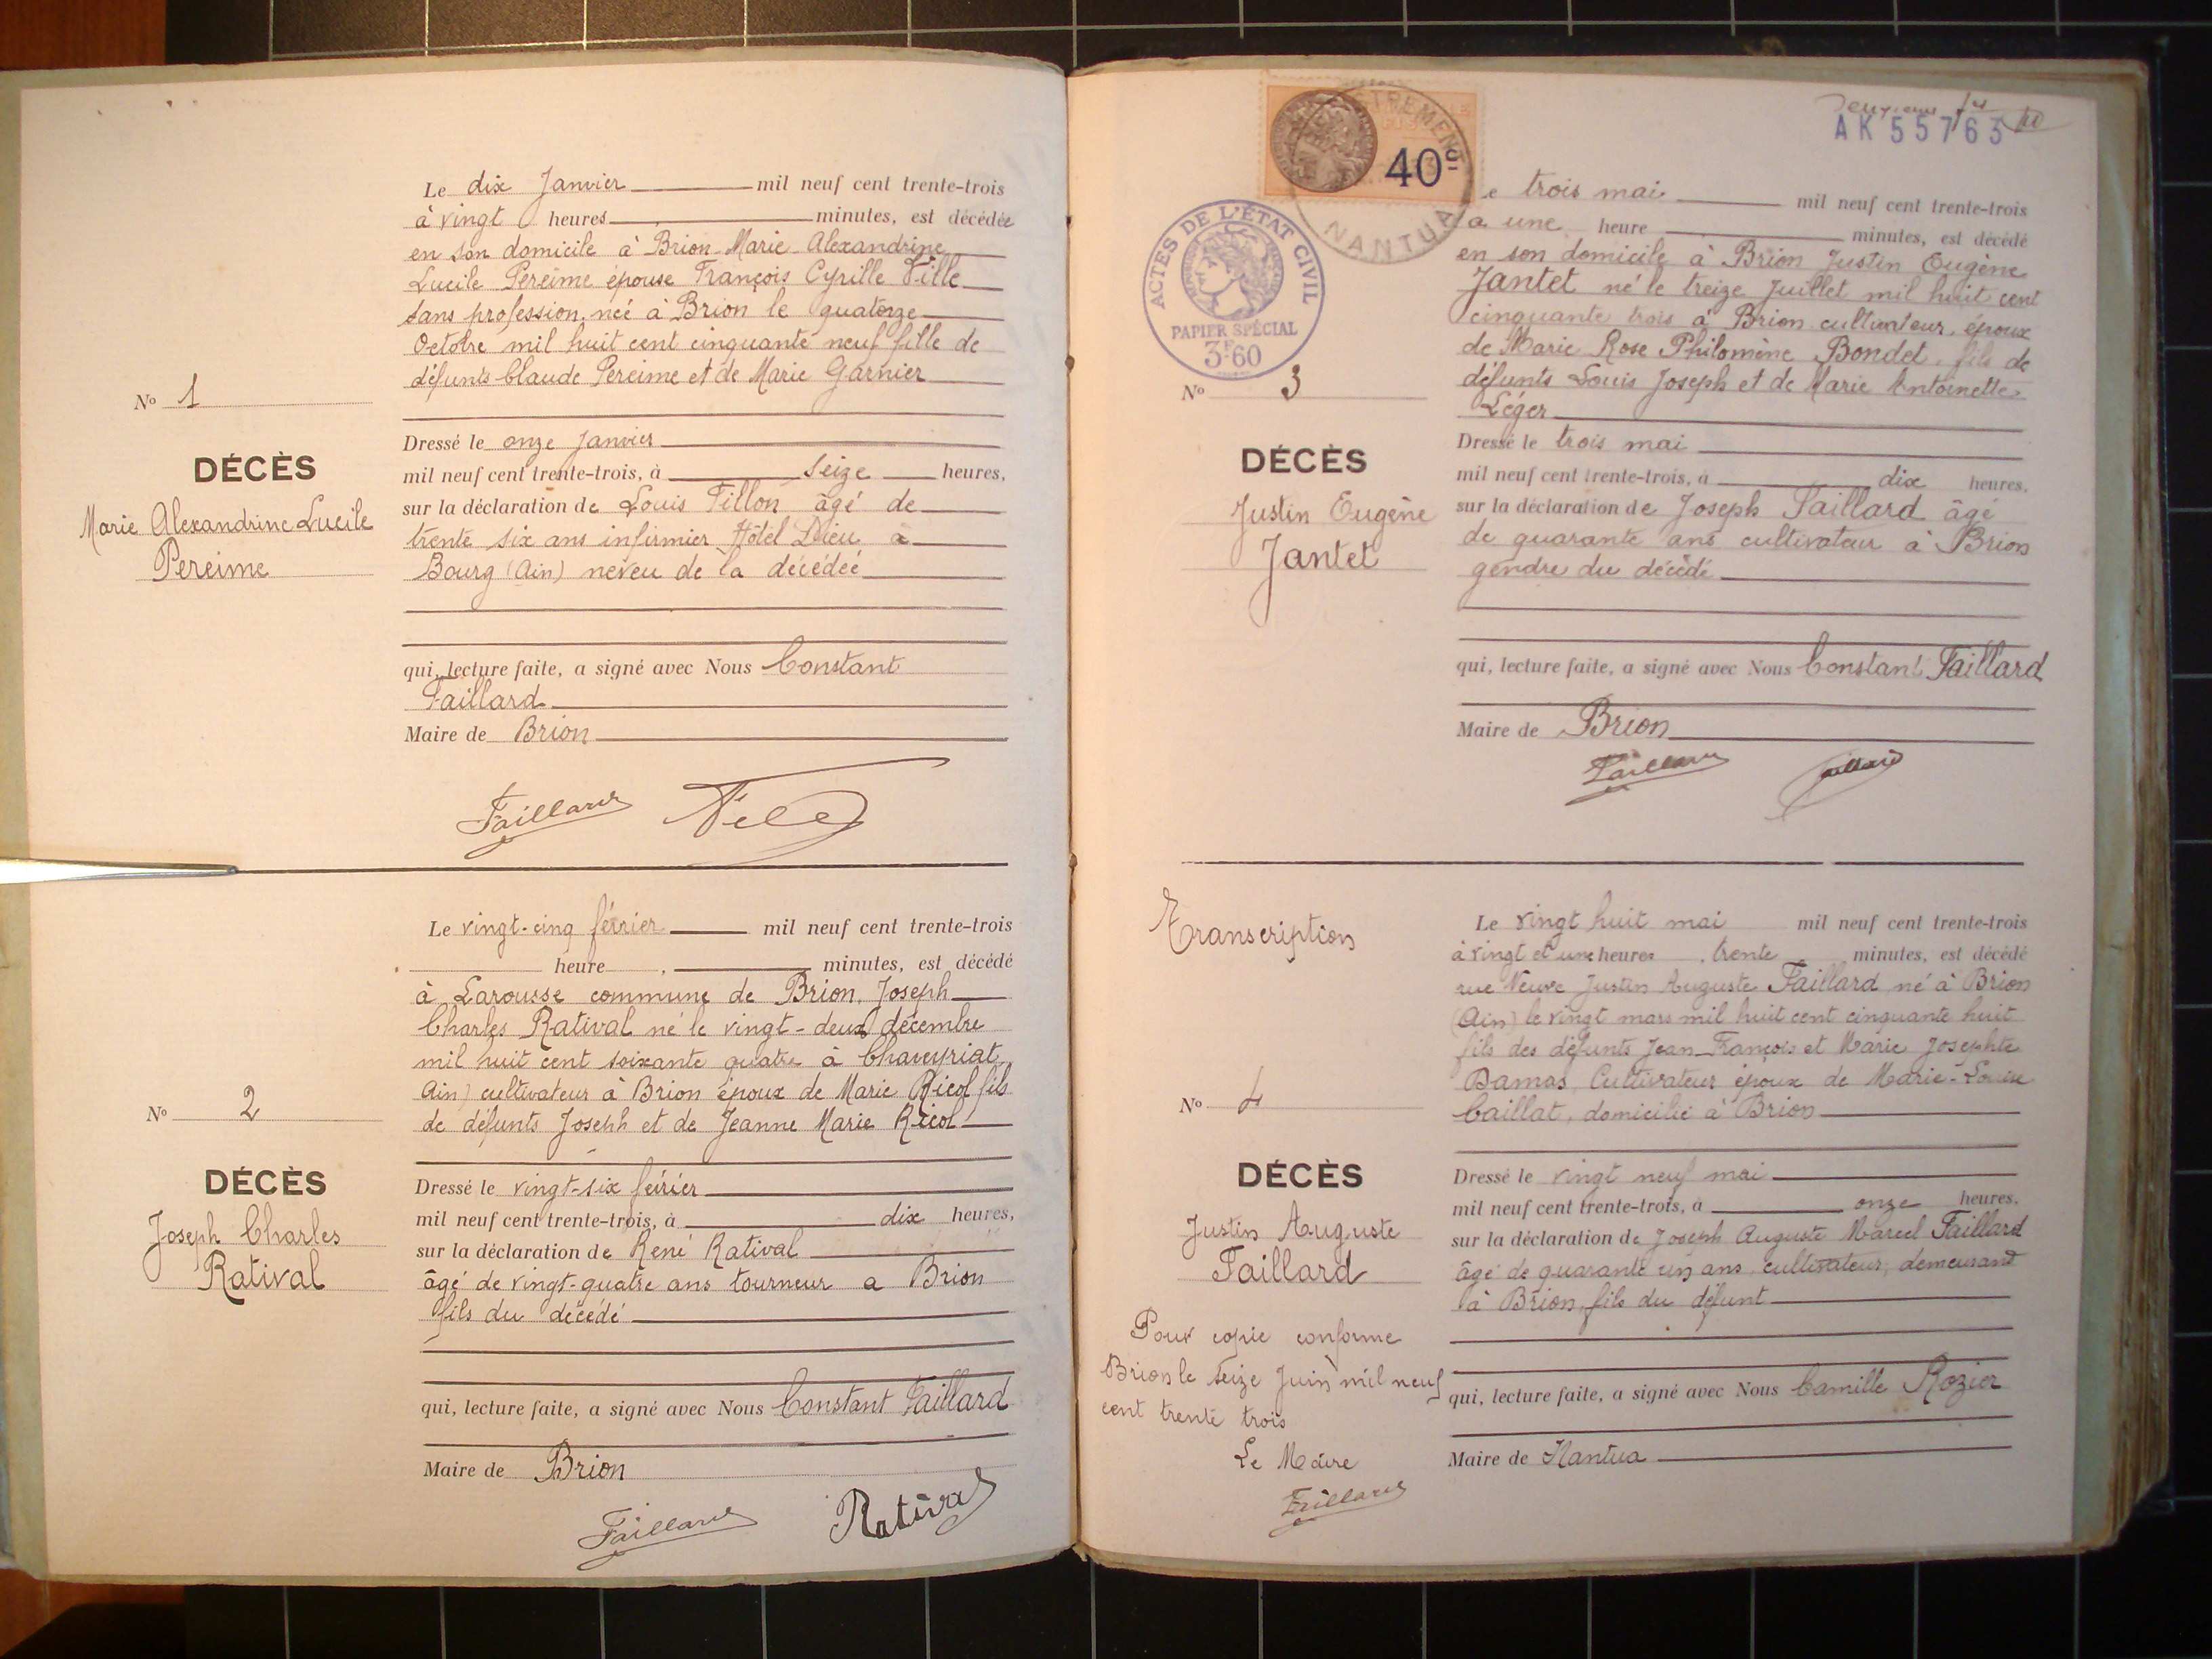 Le dix Janvier mil neuf cent trente-trois
à vingt heures minutes, est décédée
en son domicile à Brion Marie Alexandrine
Lucile Pereime épouse François Cyrille
sans profession, née à Brion le quatorze
Octobre mil huit cent cinquante neuf fille de
défunts Claude Pereime et de Marie Garnier
No 1
DÉCÈS
Marie Alexandrine Lucile
Pereime
Dressé le onze Janvier
mil neuf cent trente-trois, à seize heures,
sur la déclaration de Louis âgé de
trente six ans infirmier Hôtel Dieu à
Bourg (Ain) neveu de la décédée
qui, lecture faite, a signé avec Nous Constant
Faillard
Maire de Brion
Faillard
Le vingt-cinq février mil neuf cent trente-trois
heure minutes, est décédé
à Larousse commune de Brion, Joseph
Charles Ratival né le vingt-deux décembre
mil huit cent soixante quatre à Chaveyriat
Ain) cultivateur à Brion époux de Marie Ricol fils
de défunts Joseph et de Jeanne Marie Ricol
No 2
DÉCÈS
Joseph Charles
Ratival
Dressé le vingt-six février
mil neuf cent trente-trois, à dix heures,
sur la déclaration de René Ratival
âgé de vingt-quatre ans tourneur a Brion
fils du décédé
qui, lecture faite, a signé avec Nous Constant Faillard
Maire de Brion
Faillard Ratival
AK 55763
40c
NANTUA
ACTES DE L'ÉTAT CIVIL
PAPIER SPÉCIAL
3F60
e trois mai mil neuf cent trente-trois
a une heure minutes, est décédé
en son domicile à Brion Justin Eugène
Jantet né le treize Juillet mil huit cent
cinquante trois à Brion cultivateur, époux
de Marie Rose Philomène Bondet, fils de
défunts Louis Joseph et de Marie Antoinette
Léger
No 3
DÉCÈS
Justin Eugène
Jantet
Dressé le trois mai
mil neuf cent trente-trois, à dix heures,
sur la déclaration de Joseph Faillard âgé
de quarante ans cultivateur à Brion
gendre du décédé
qui, lecture faite, a signé avec Nous Constant Faillard
Maire de Brion
Faillard Faillard
Transcription
Le vingt huit mai mil neuf cent trente-trois
à vingt et une heures, trente minutes, est décédé
rue Neuve Justin Auguste Faillard né à Brion
(Ain) le vingt mars mil huit cent cinquante huit
fils des défunts Jean François et Marie Josephte
Damas Cultivateur époux de Marie-Louise
Caillat, domicilié à Brion
No 4
DÉCÈS
Justin Auguste
Faillard
Dressé le vingt neuf mai
mil neuf cent trente-trois, à onze heures,
sur la déclaration de Joseph Auguste Marcel Faillard
âgé de quarante un ans, cultivateur, demeurant
à Brion, fils du défunt
Pour copie conforme
Brion le seize Juin mil neuf
cent trente trois
Le Maire
Faillard
qui, lecture faite, a signé avec Nous Camille Rozier
Maire de Nantua